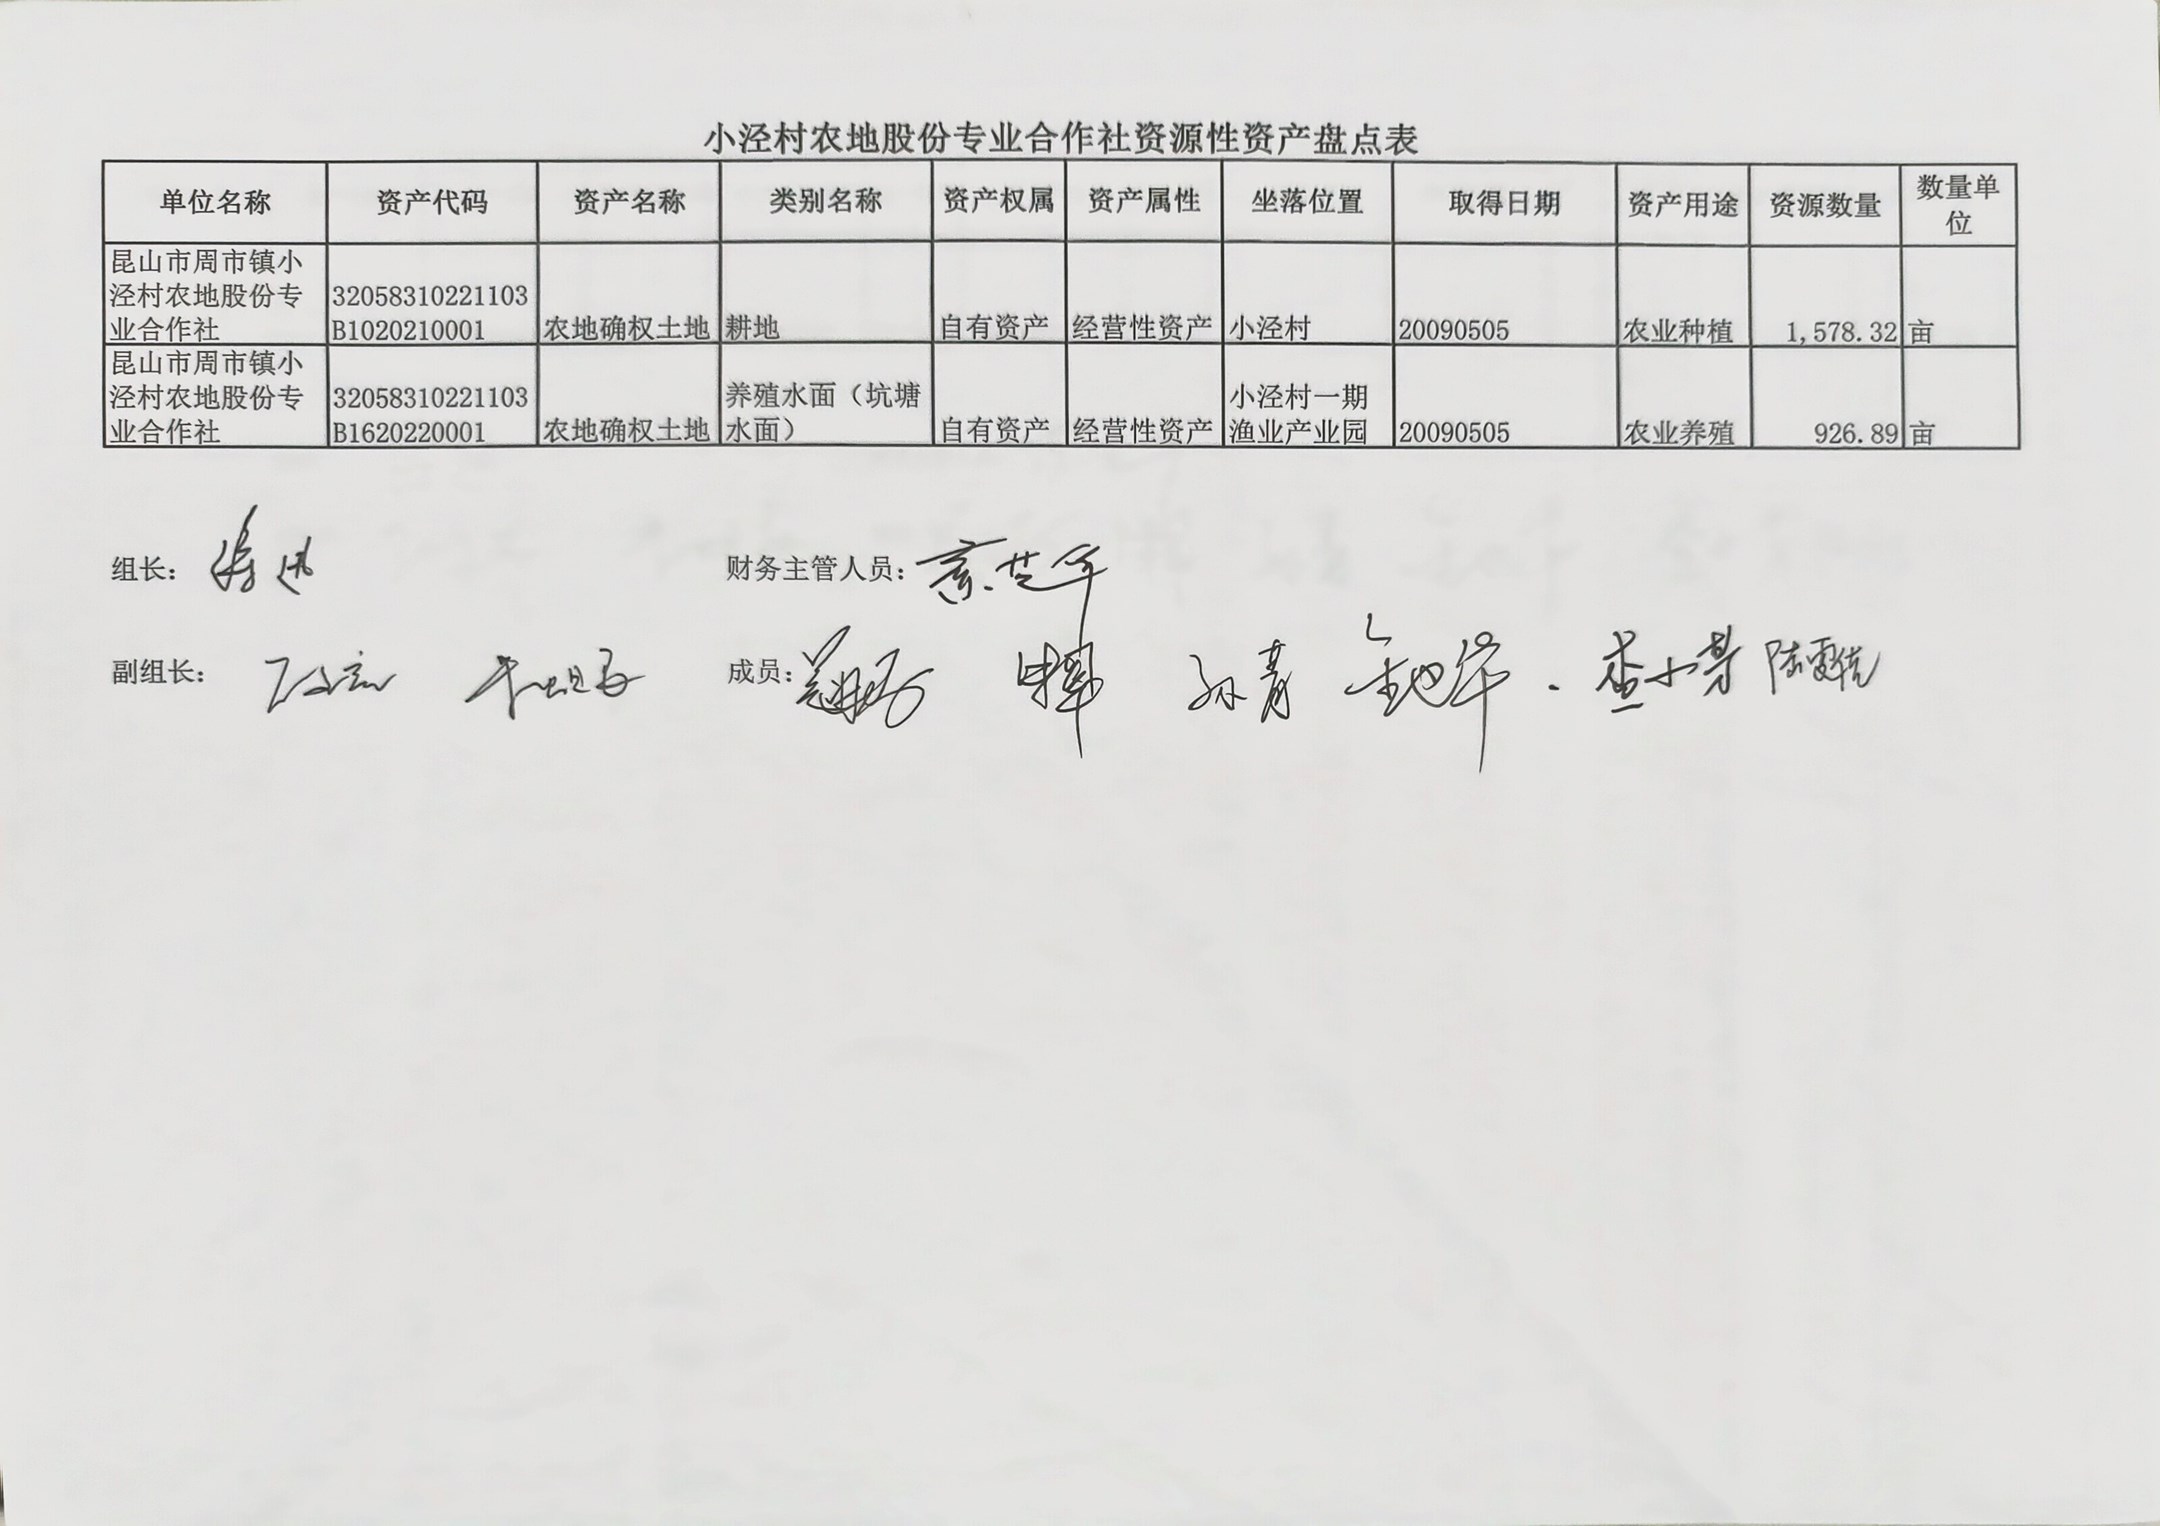 小泾村农地股份专业合作社资源性资产盘点表
单位名称 资产代码 资产名称 类别名称 资产权属 资产属性 坐落位置 取得日期 资产用途 资源数量 数量单位
昆山市周市镇小泾村农地股份专业合作社 32058310221103B1020210001 农地确权土地 耕地 自有资产 经营性资产 小泾村 20090505 农业种植 1,578.32 亩
昆山市周市镇小泾村农地股份专业合作社 32058310221103B1620220001 农地确权土地 养殖水面（坑塘水面） 自有资产 经营性资产 小泾村一期渔业产业园 20090505 农业养殖 926.89 亩
组长： 财务主管人员：
副组长： 成员： 孙青